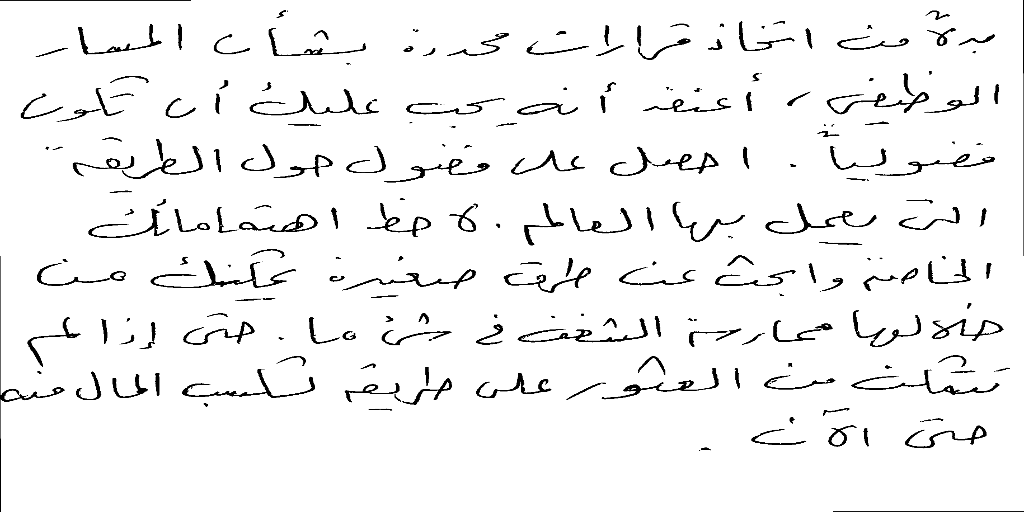 بدلاً من اتخاذ قرارات محددة بشأن المسار
الوظيفي، أعتقد أنه يجب عليك أن تكون
فضولياً. احصل على فضول حول الطريقة
التي يعمل بها العالم. لاحظ اهتماماتك
الخاصة وابحث عن طرق صغيرة يمكنك من
خلالها ممارسة الشغف في شئ ما. حتى إذا لم
تتمكن من العثور على طريقة لكسب المال منه
حتى الآن.